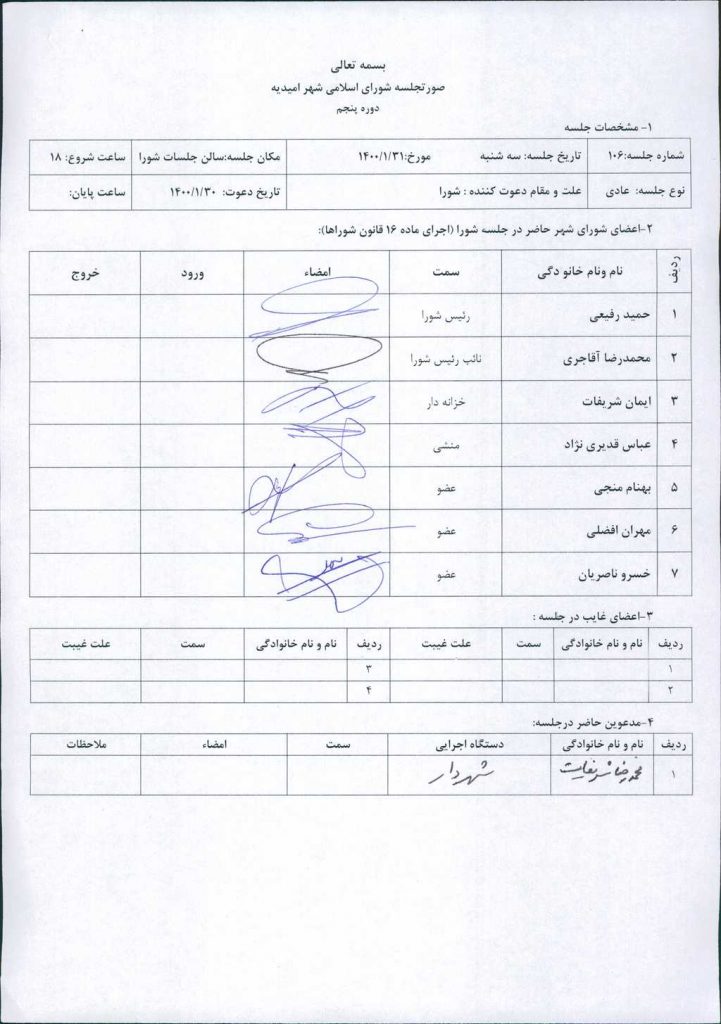 بسمه تعالی
صورتجلسه شورای اسلامی شهر امیدیه
دوره پنجم
۱- مشخصات جلسه
شماره جلسه:۱۰۶ تاریخ جلسه: سه شنبه مورخ:۱۴۰۰/۱/۳۱ مکان جلسه:سالن جلسات شورا ساعت شروع: ۱۸
نوع جلسه: عادی علت و مقام دعوت کننده : شورا تاریخ دعوت: ۱۴۰۰/۱/۳۰ ساعت پایان:
۲-اعضای شورای شهر حاضر در جلسه شورا (اجرای ماده ۱۶ قانون شوراها):
ردیف نام ونام خانو دگی سمت امضاء ورود خروج
۱ حمید رفیعی رئیس شورا
۲ محمدرضا آقاجری نائب رئیس شورا
۳ ایمان شریفات خزانه دار
۴ عباس قدیری نژاد منشی
۵ بهنام منجی عضو
۶ مهران افضلی عضو
۷ خسرو ناصریان عضو
۳-اعضای غایب در جلسه :
ردیف نام و نام خانوادگی سمت علت غیبت ردیف نام و نام خانوادگی سمت علت غیبت
۱ ۳
۲ ۴
۴-مدعوین حاضر درجلسه:
ردیف نام و نام خانوادگی دستگاه اجرایی سمت امضاء ملاحظات
۱ محمدرضا شریفات شهردار